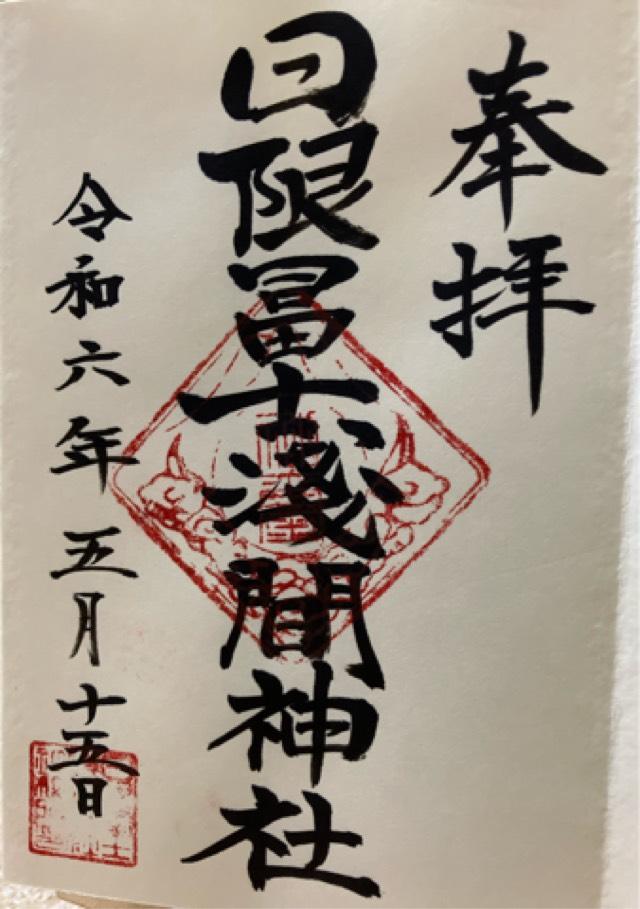 奉拝
日限冨士浅間神社
令和六年五月十五日